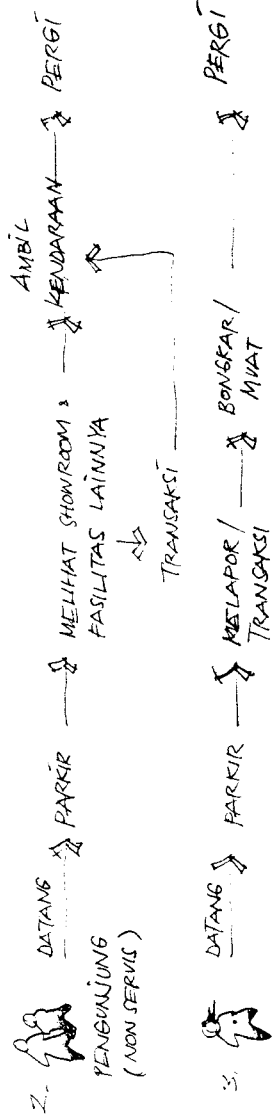 2.
PENGUNJUNG
(NON SERVIS)
DATANG
PARKIR
MELIHAT SHOWROOM &
FASILITAS LAINNYA
TRANSAKSI
AMBIL
KENDARAAN
PERGI
3.
DATANG
PARKIR
MELAPOR/
TRANSAKSI
BONGKAR/
MUAT
PERGI